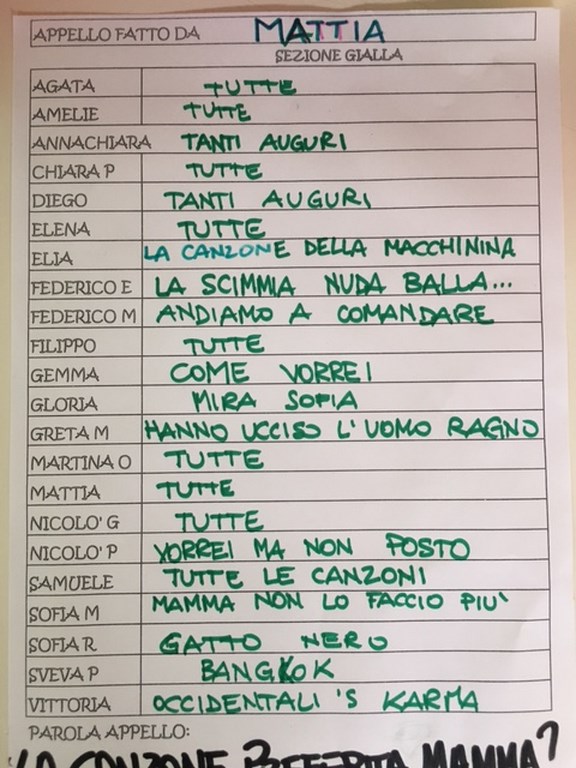 APPELLO FATTO DA MATTIA
SEZIONE GIALLA
AGATA TUTTE
AMELIE TUTTE
ANNACHIARA TANTI AUGURI
CHIARA P TUTTE
DIEGO TANTI AUGURI
ELENA TUTTE
ELIA LA CANZONE DELLA MACCHININA
FEDERICO E LA SCIMMIA NUDA BALLA...
FEDERICO M ANDIAMO A COMANDARE
FILIPPO TUTTE
GEMMA COME VORREI
GLORIA MIRA SOFIA
GRETA M HANNO UCCISO L'UOMO RAGNO
MARTINA O TUTTE
MATTIA TUTTE
NICOLO' G TUTTE
NICOLO' P VORREI MA NON POSTO
SAMUELE TUTTE LE CANZONI
SOFIA M MAMMA NON LO FACCIO PIU'
SOFIA R GATTO NERO
SVEVA P BANGKOK
VITTORIA OCCIDENTALI'S KARMA
PAROLA APPELLO:
LA CANZONE PREFERITA MAMMA?